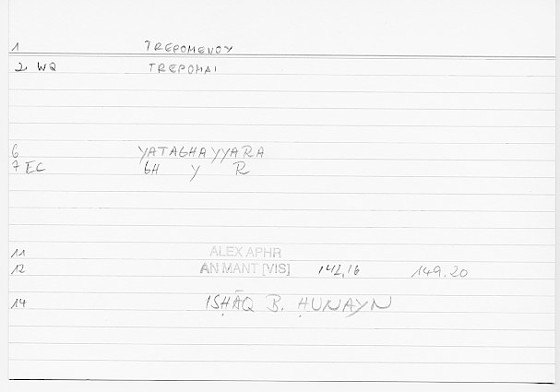 1 TREPOMENOY
2 WQ TREPOMAI
6 YATAGHAYYARA
7 EC GH Y R
11 ALEX APHR
12 AN MANT [VIS] 141,16 149.20
14 ISḤĀQ B. ḤUNAYN